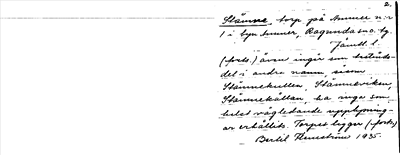 2.
Stämne, torp på Ammer n:r
1 i byn Ammer, Ragunda sn o. tg.
Jämtl. l.
(forts.) även ingår som bestånds-
del i andra namn såsom
Stämnekullen, Stämneviken,
Stämnekällan, ha inga som
helst vägledande upplysning-
ar erhållits. Torpet ligger (forts.)
Bertil Flemström 1935.